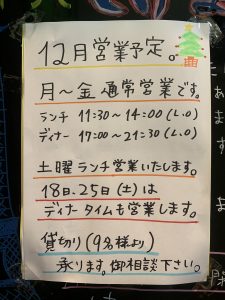 12月営業予定。
月〜金 通常営業です。
ランチ 11:30〜14:00(L.O)
ディナー 17:00〜21:30(L.O)
土曜ランチ営業いたします。
18日、25日(土)は
ディナータイムも営業します。
貸切り(9名様より)
承ります。御相談下さい。